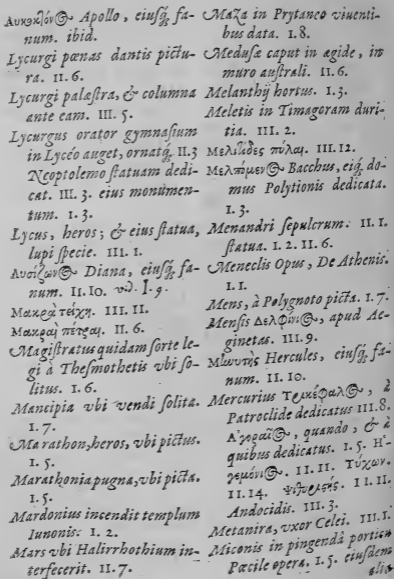 Λυκοκτόν⊕ Apollo, eiusq́; fa-
num. ibid.
Lycurgi pœnas dantis pictu-
ra. II.6.
Lycurgi palæstra, & columna
ante eam. III. 5.
Lycurgus orator gymnasium
in Lycéo auget, ornatq́; II.3
Neoptolemo statuam dedi-
cat. III. 3. eius monumen-
tum. I.3.
Lycus, heros; & eius statua,
lupi specie. III. I.
Λυσίζων⊕ Diana, eiusq́; fa-
num. II.10. vid. I.9.
Μακρὰ τείχη. III. II.
Μακραὶ πέτραι. II.6.
Magistratus quidam sorte le-
gi à Thesmothetis vbi so-
litus. I.6.
Mancipia vbi vendi solita.
I.7.
Marathon, heros, vbi pictus.
I.5.
Marathonia pugna, vbi picta.
I.5.
Mardonius incendit templum
Iunonis. I.2.
Mars vbi Halirrhothium in-
terfecerit. II.7.
Maza in Prytaneo viuenti-
bus data. I.8.
Medusæ caput in ægide, in
muro australi. II.6.
Melanthij hortus. I.3.
Meletis in Timagoram duri-
tia. III.2.
Μελιτίδες πύλαι. III.12.
Μελπόμεν⊕ Bacchus, eiq́; do-
mus Polytionis dedicata.
I.3.
Menandri sepulcrum. II.I.
statua. I.2. II.6.
Meneclis Opus, De Athenis.
I.I.
Mens, à Polygnoto picta. I.7.
Mensis Δελφίνι⊕, apud Ae-
ginetas. III.9.
Μηνυτὴς Hercules, eiusq́; fa-
num. II.10.
Mercurius Τρικέφαλ⊕, à
Patroclide dedicatus III.8.
Ἀγοραῖ⊕, quando, & à
quibus dedicatus. I.5. Ἡ-
γεμόνι⊕. II.II. Τύχων.
II.14. Ψιθυριστής. II.II.
Andocidis. III.3.
Metanira, vxor Celei. III.I.
Miconis in pingendâ porticu
Pœcile opera. I.5. eiusdem